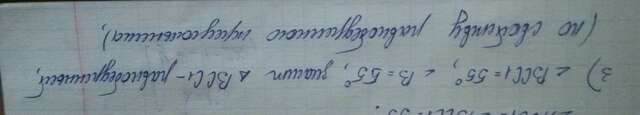 3) ∠BCC1=55°, ∠B=55°, значит △BCC1-равнобедренный,
(по свойству равнобедренного треугольника),